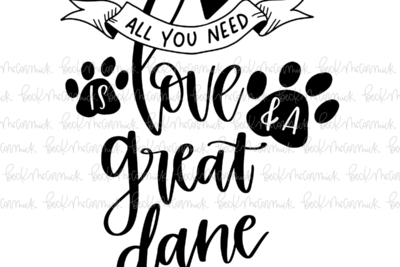 ALL YOU NEED
IS love & A
great
dane